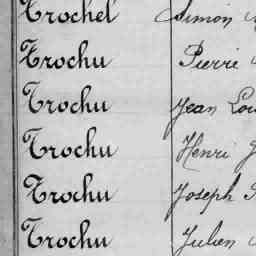 Trochel Simon
Trochu Pierre
Trochu Jean
Trochu Henri
Trochu Joseph
Trochu Julien